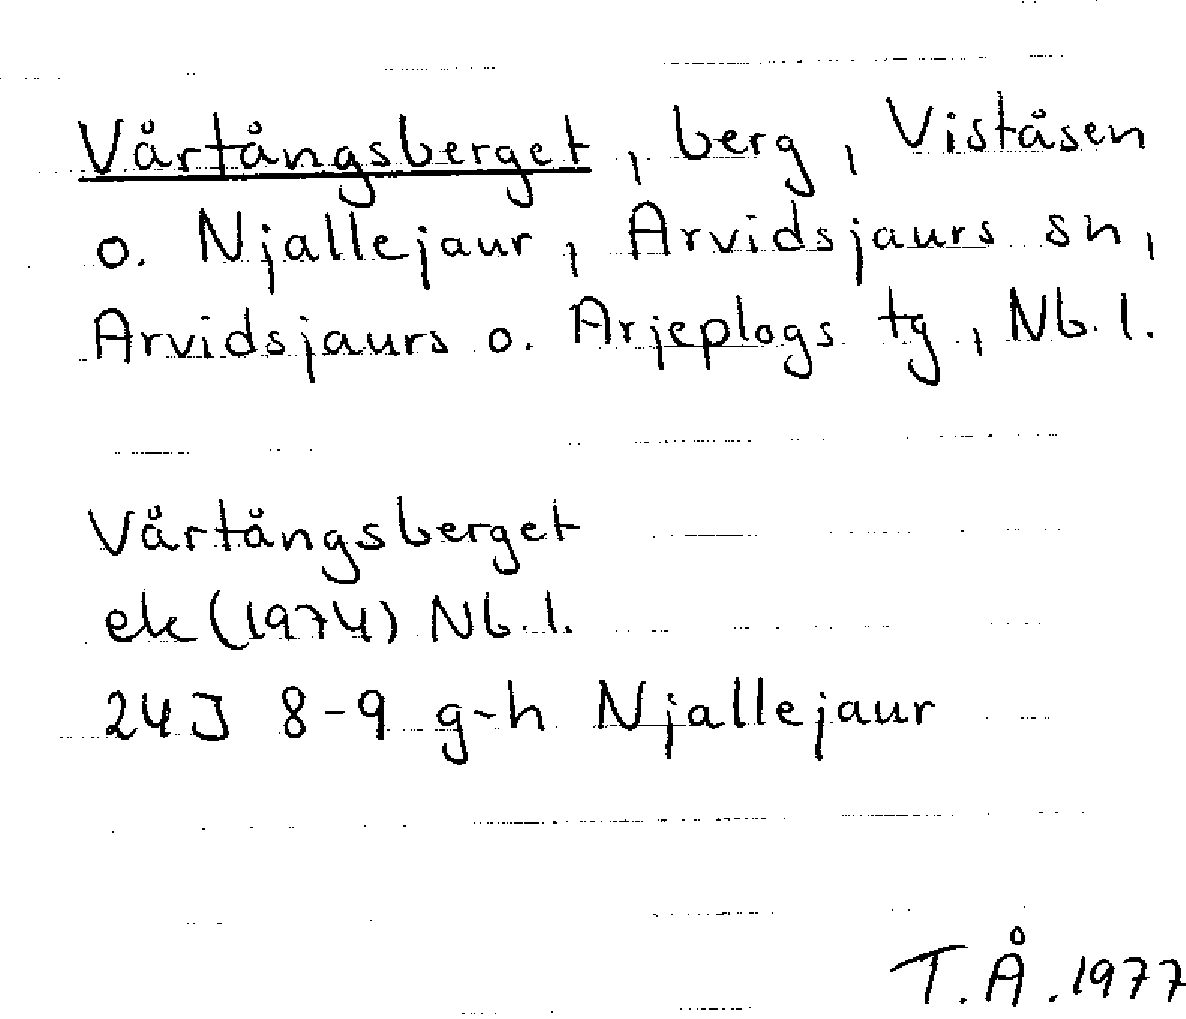 Vårtångsberget, berg, Viståsen
o. Njallejaur, Arvidsjaurs sn,
Arvidsjaurs o. Arjeplogs tg, Nb. l.
Vårtångsberget
ek (1974) Nb. l.
24J 8-9 g-h Njallejaur
T. Å. 1977